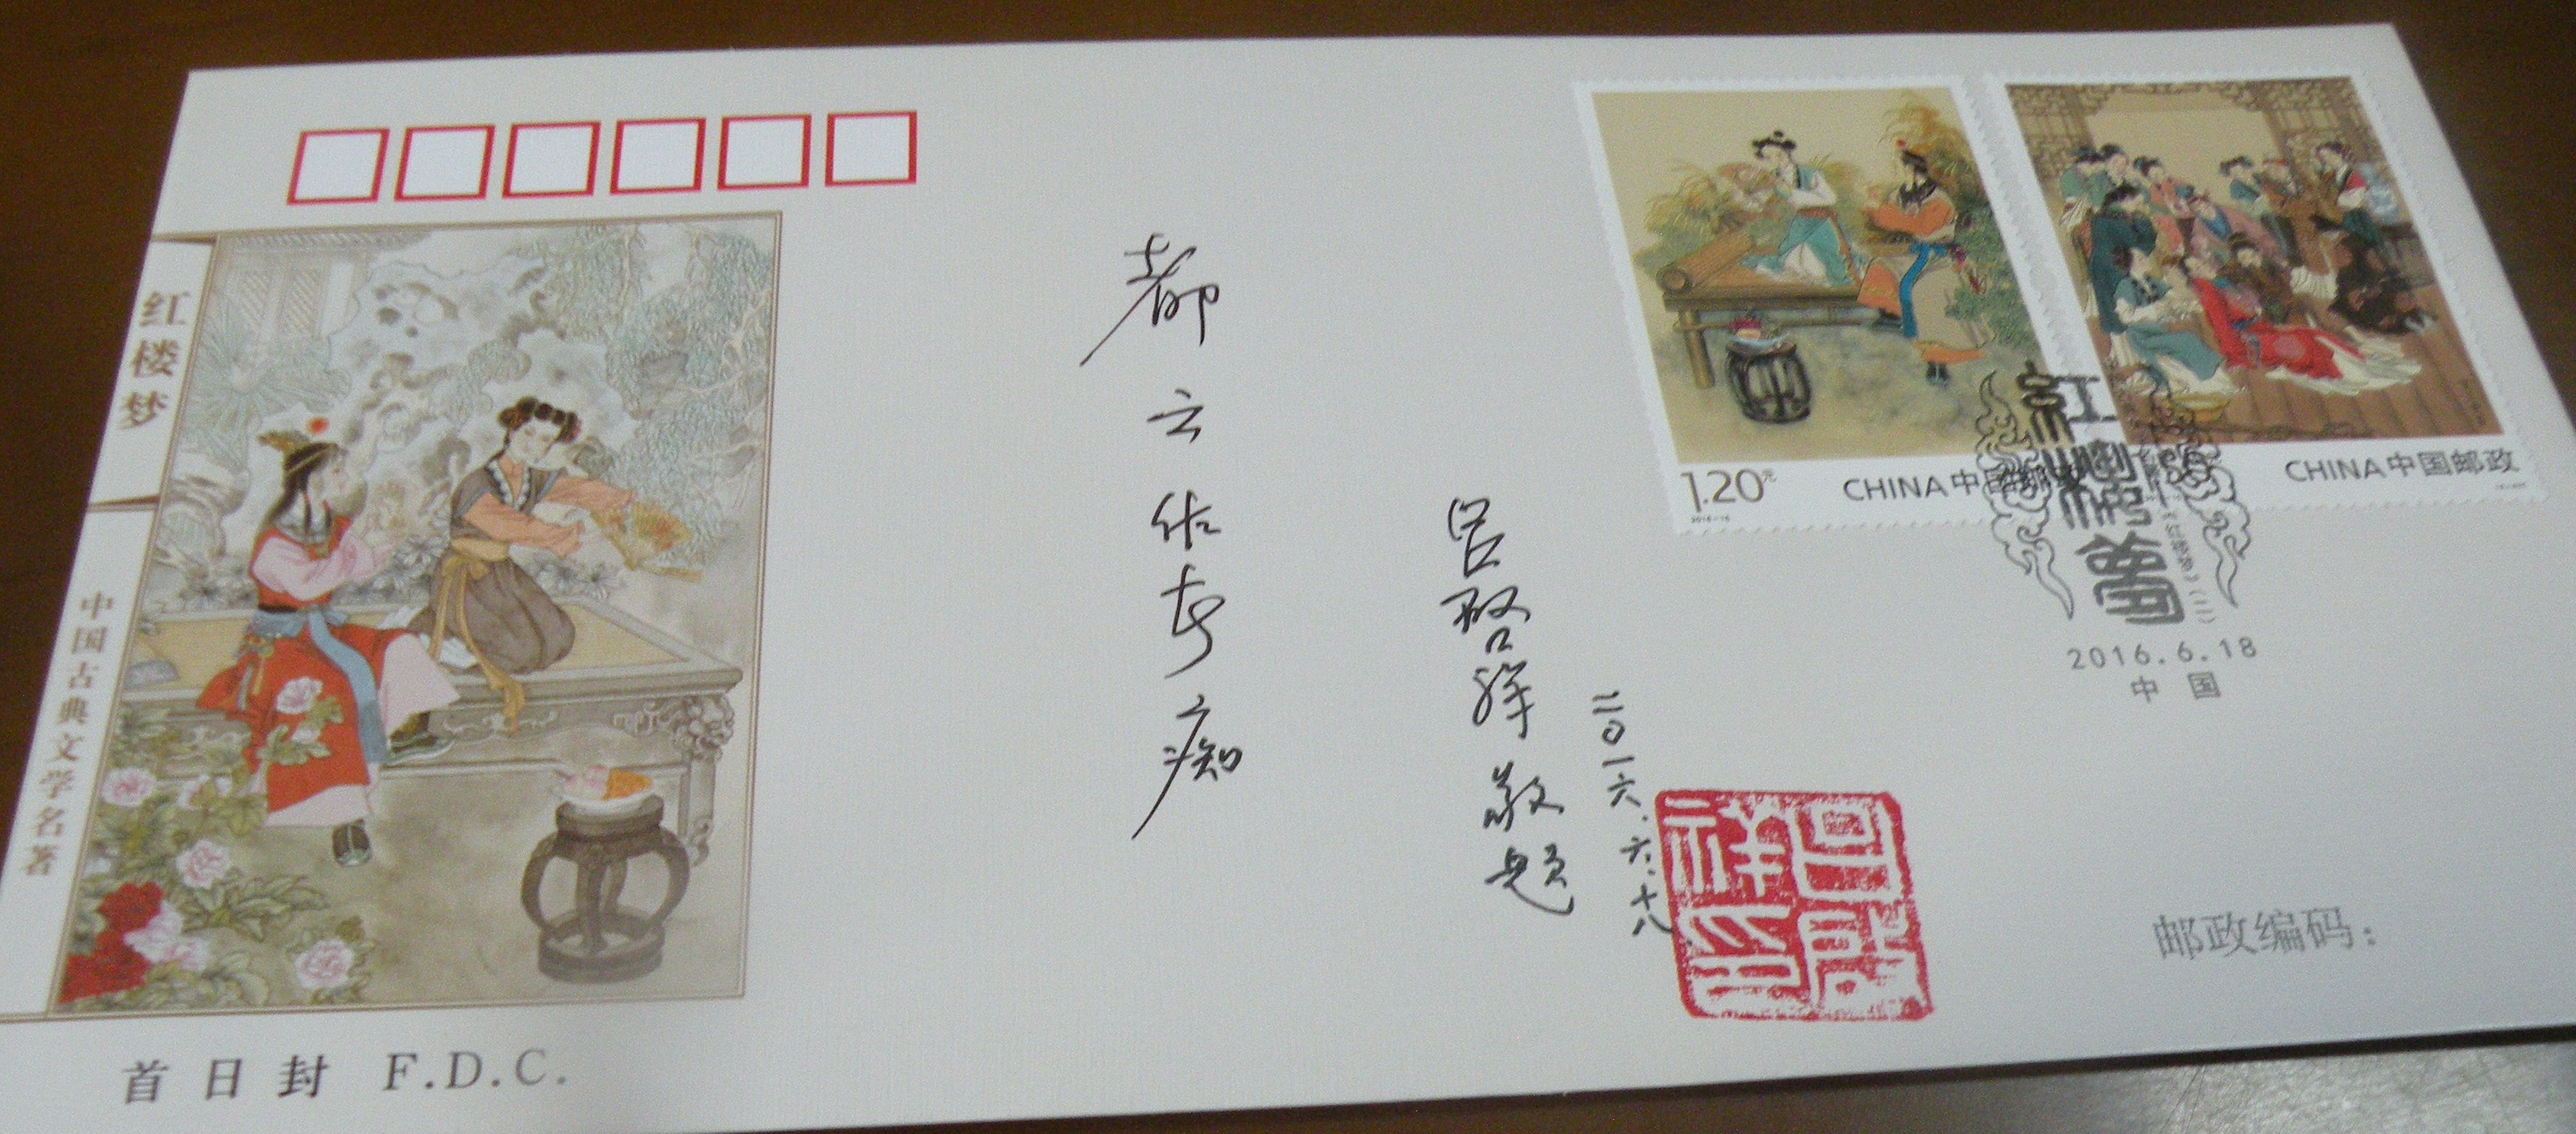 红楼梦
中国古典文学名著
首日封 F.D.C.
都云作者痴
吕启祥敬题
二〇一六.六.十八
1.20元
CHINA 中国邮政
CHINA 中国邮政
红楼梦
2016.6.18
中国
邮政编码：